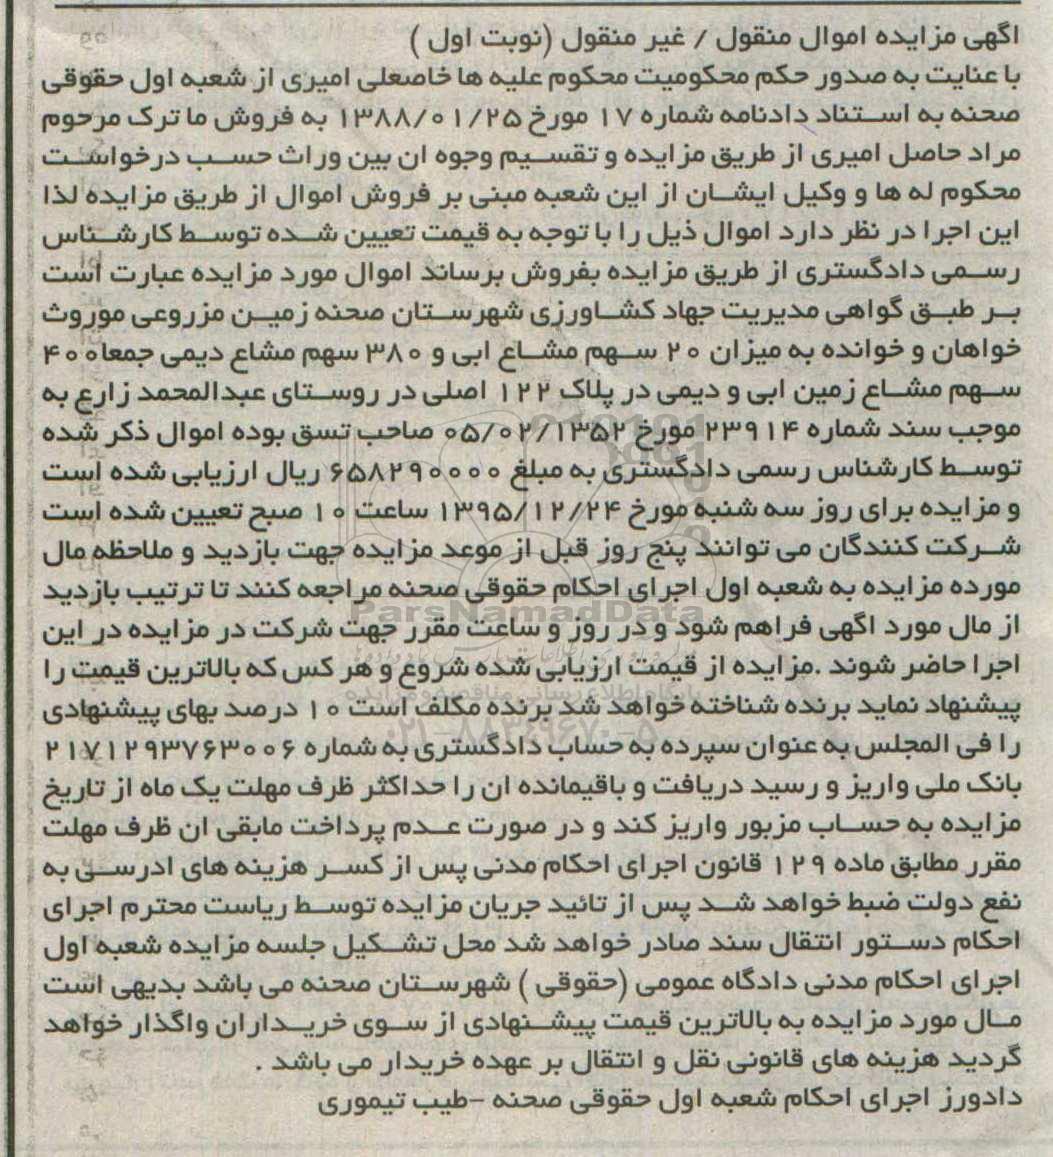 اگهی مزایده اموال منقول / غیر منقول (نوبت اول )
با عنایت به صدور حکم محکومیت محکوم علیه ها خاصعلی امیری از شعبه اول حقوقی
صحنه به استناد دادنامه شماره ۱۷ مورخ ۱۳۸۸/۰۱/۲۵ به فروش ما ترک مرحوم
مراد حاصل امیری از طریق مزایده و تقسیم وجوه ان بین وراث حسب درخواست
محکوم له ها و وکیل ایشان از این شعبه مبنی بر فروش اموال از طریق مزایده لذا
این اجرا در نظر دارد اموال ذیل را با توجه به قیمت تعیین شده توسط کارشناس
رسمی دادگستری از طریق مزایده بفروش برساند اموال مورد مزایده عبارت است
بر طبق گواهی مدیریت جهاد کشاورزی شهرستان صحنه زمین مزروعی موروث
خواهان و خوانده به میزان ۲۰ سهم مشاع ابی و ۳۸۰ سهم مشاع دیمی جمعا ۴۰۰
سهم مشاع زمین ابی و دیمی در پلاک ۱۲۲ اصلی در روستای عبدالمحمد زارع به
موجب سند شماره ۲۳۹۱۴ مورخ ۰۵/۰۲/۱۳۵۲ صاحب تسق بوده اموال ذکر شده
توسط کارشناس رسمی دادگستری به مبلغ ۶۵۸۲۹۰۰۰۰ ریال ارزیابی شده است
و مزایده برای روز سه شنبه مورخ ۱۳۹۵/۱۲/۲۴ ساعت ۱۰ صبح تعیین شده است
شرکت کنندگان می توانند پنج روز قبل از موعد مزایده جهت بازدید و ملاحظه مال
مورده مزایده به شعبه اول اجرای احکام حقوقی صحنه مراجعه کنند تا ترتیب بازدید
ParsNamadData
از مال مورد اگهی فراهم شود و در روز و ساعت مقرر جهت شرکت در مزایده در این
اجرا حاضر شوند .مزایده از قیمت ارزیابی شده شروع و هر کس که بالاترین قیمت را
پایگاه اطلاع رسانی مناقصه و مزایده
پیشنهاد نماید برنده شناخته خواهد شد برنده مکلف است ۱۰ درصد بهای پیشنهادی
۰۲۱-۸۸۳۴۹۶۷۰-۵
را فی المجلس به عنوان سپرده به حساب دادگستری به شماره ۲۱۷۱۲۹۳۷۶۳۰۰۶
بانک ملی واریز و رسید دریافت و باقیمانده ان را حداکثر ظرف مهلت یک ماه از تاریخ
مزایده به حساب مزبور واریز کند و در صورت عدم پرداخت مابقی ان ظرف مهلت
مقرر مطابق ماده ۱۲۹ قانون اجرای احکام مدنی پس از کسر هزینه های ادرسی به
نفع دولت ضبط خواهد شد پس از تائید جریان مزایده توسط ریاست محترم اجرای
احکام دستور انتقال سند صادر خواهد شد محل تشکیل جلسه مزایده شعبه اول
اجرای احکام مدنی دادگاه عمومی (حقوقی ) شهرستان صحنه می باشد بدیهی است
مال مورد مزایده به بالاترین قیمت پیشنهادی از سوی خریداران واگذار خواهد
گردید هزینه های قانونی نقل و انتقال بر عهده خریدار می باشد .
دادورز اجرای احکام شعبه اول حقوقی صحنه -طیب تیموری